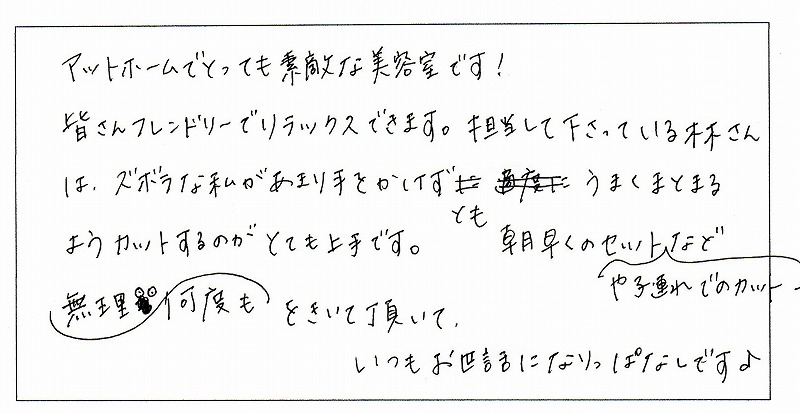 アットホームでとっても素敵な美容室です!
皆さんフレンドリーでリラックスできます。担当して下さっている林さん
は、ズボラな私があまり手をかけず うまくまとまる
とも
ようカットするのがとても上手です。 朝早くのセットなど
や子連れでのカット
無理 何度も をきいて頂いて、
いつもお世話になりっぱなしです♪